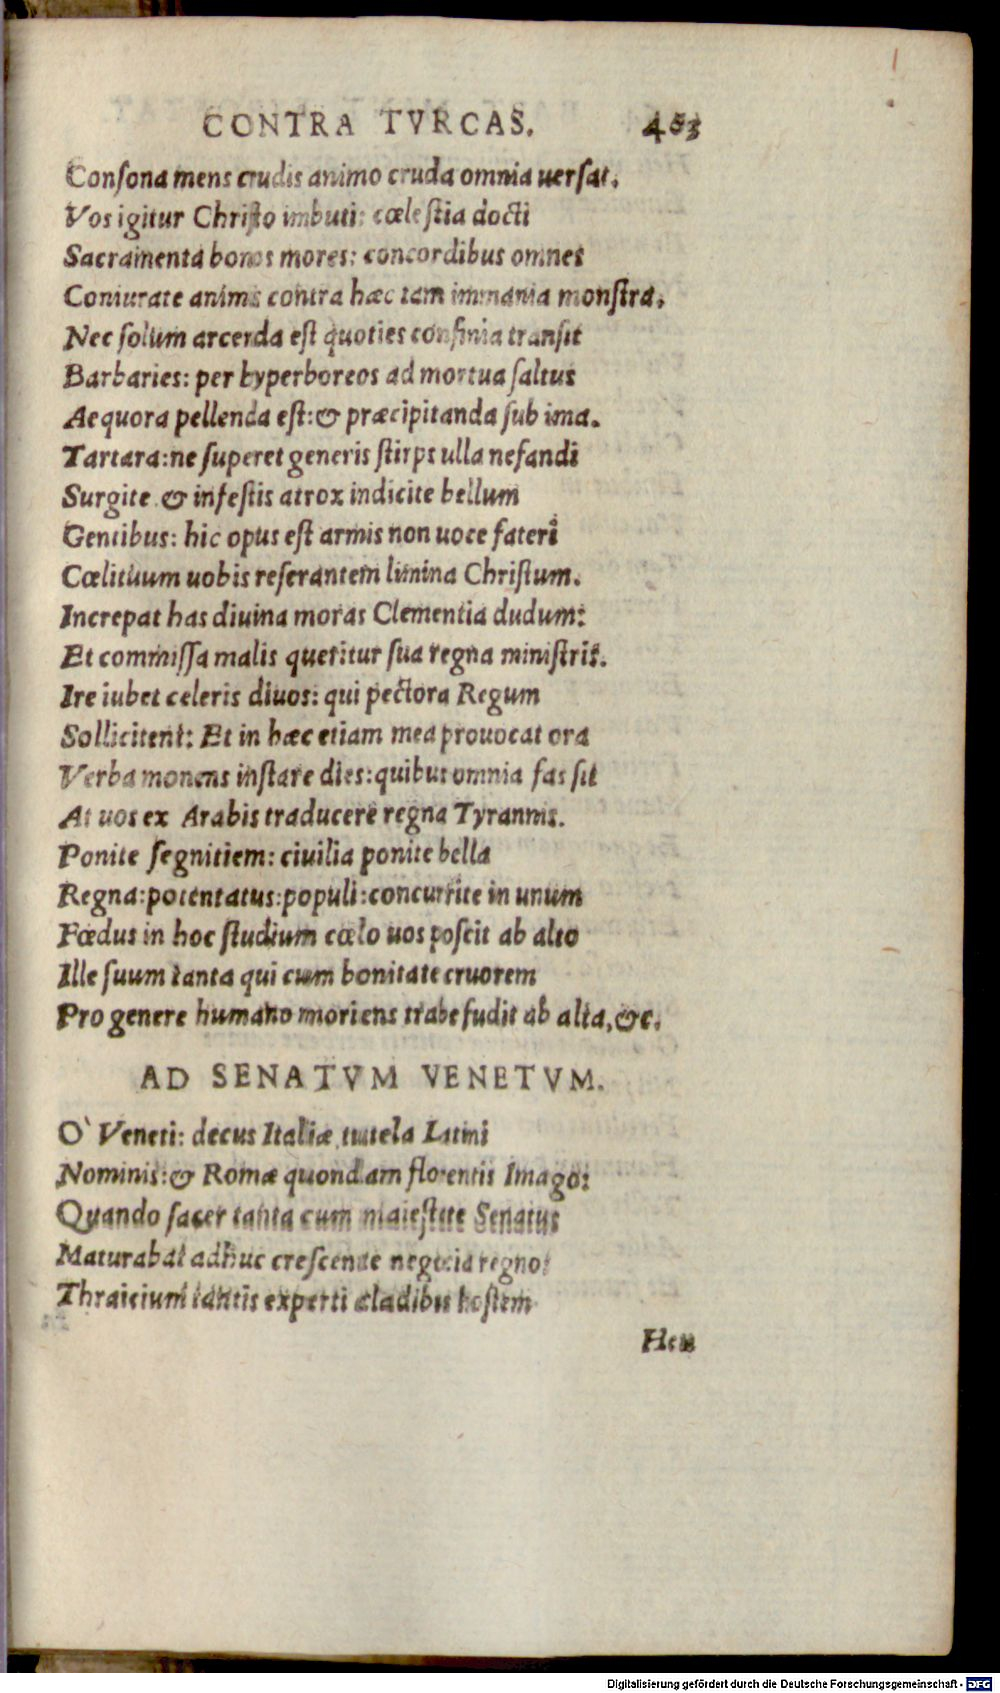 CONTRA TVRCAS. 453
Conſona mens crudis animo cruda omnia uerſat.
Vos igitur Chriſto imbuti: cœleſtia docti
Sacramenta bonos mores: concordibus omnes
Coniurate animis contra hæc tam immania monſtra.
Nec ſolum arcenda eſt quoties confinia tranſit
Barbaries: per hyperboreos ad mortua ſaltus
Aequora pellenda eſt: & præcipitanda ſub ima.
Tartara: ne ſuperet generis ſtirps ulla nefandi
Surgite & infeſtis atrox indicite bellum
Gentibus: hic opus eſt armis non uoce fateri
Cœlituum uobis reſerantem limina Chriſtum.
Increpat has diuina moras Clementia dudum:
Et commiſſa malis queritur ſua regna miniſtris.
Ire iubet celeris diuos: qui pectora Regum
Sollicitent: Et in hæc etiam mea prouocat ora
Verba monens inſtare dies: quibus omnia fas ſit
At uos ex Arabis traducere regna Tyrannis.
Ponite ſegnitiem: ciuilia ponite bella
Regna: potentatus: populi: concurrite in unum
Fœdus in hoc ſtudium cœlo uos poſcit ab alto
Ille ſuum tanta qui cum bonitate cruorem
Pro genere humano moriens trabe fudit ab alta, &c.
AD SENATVM VENETVM.
O` Veneti: decus Italiæ tutela Latini
Nominis: & Romæ quondam florentis Imago:
Quando ſacer tanta cum maieſtate Senatus
Maturabat adhuc creſcente negocia regno:
Thraicium tantis experti cladibus hoſtem
Heu
Digitalisierung gefördert durch die Deutsche Forschungsgemeinschaft - DFG